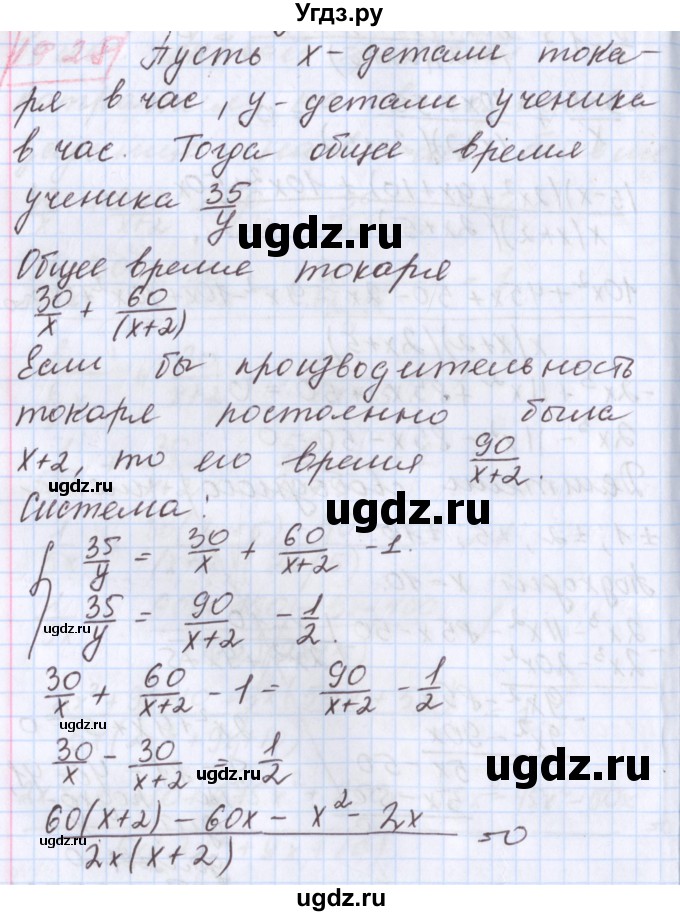 Угдз.ру
19 28
Пусть x - детали тока-
ря в час, y - детали ученика
в час. Тогда общее время
ученика 35/y
ugdz.ru
Общее время токаря
30/x + 60/(x+2)
Если бы производительность
токаря постоянно была
x+2, то его время 90/x+2.
ugdz.ru
ugdz.ru
Система:
35/y = 30/x + 60/x+2 - 1.
35/y = 90/x+2 - 1/2.
ugdz.ru
ugdz.ru
30/x + 60/x+2 - 1 = 90/x+2 - 1/2
30/x - 30/x+2 = 1/2
ugdz.ru
ugdz.ru
60(x+2) - 60x - x² - 2x / 2x(x+2) = 0
ugdz.ru
ugdz.ru